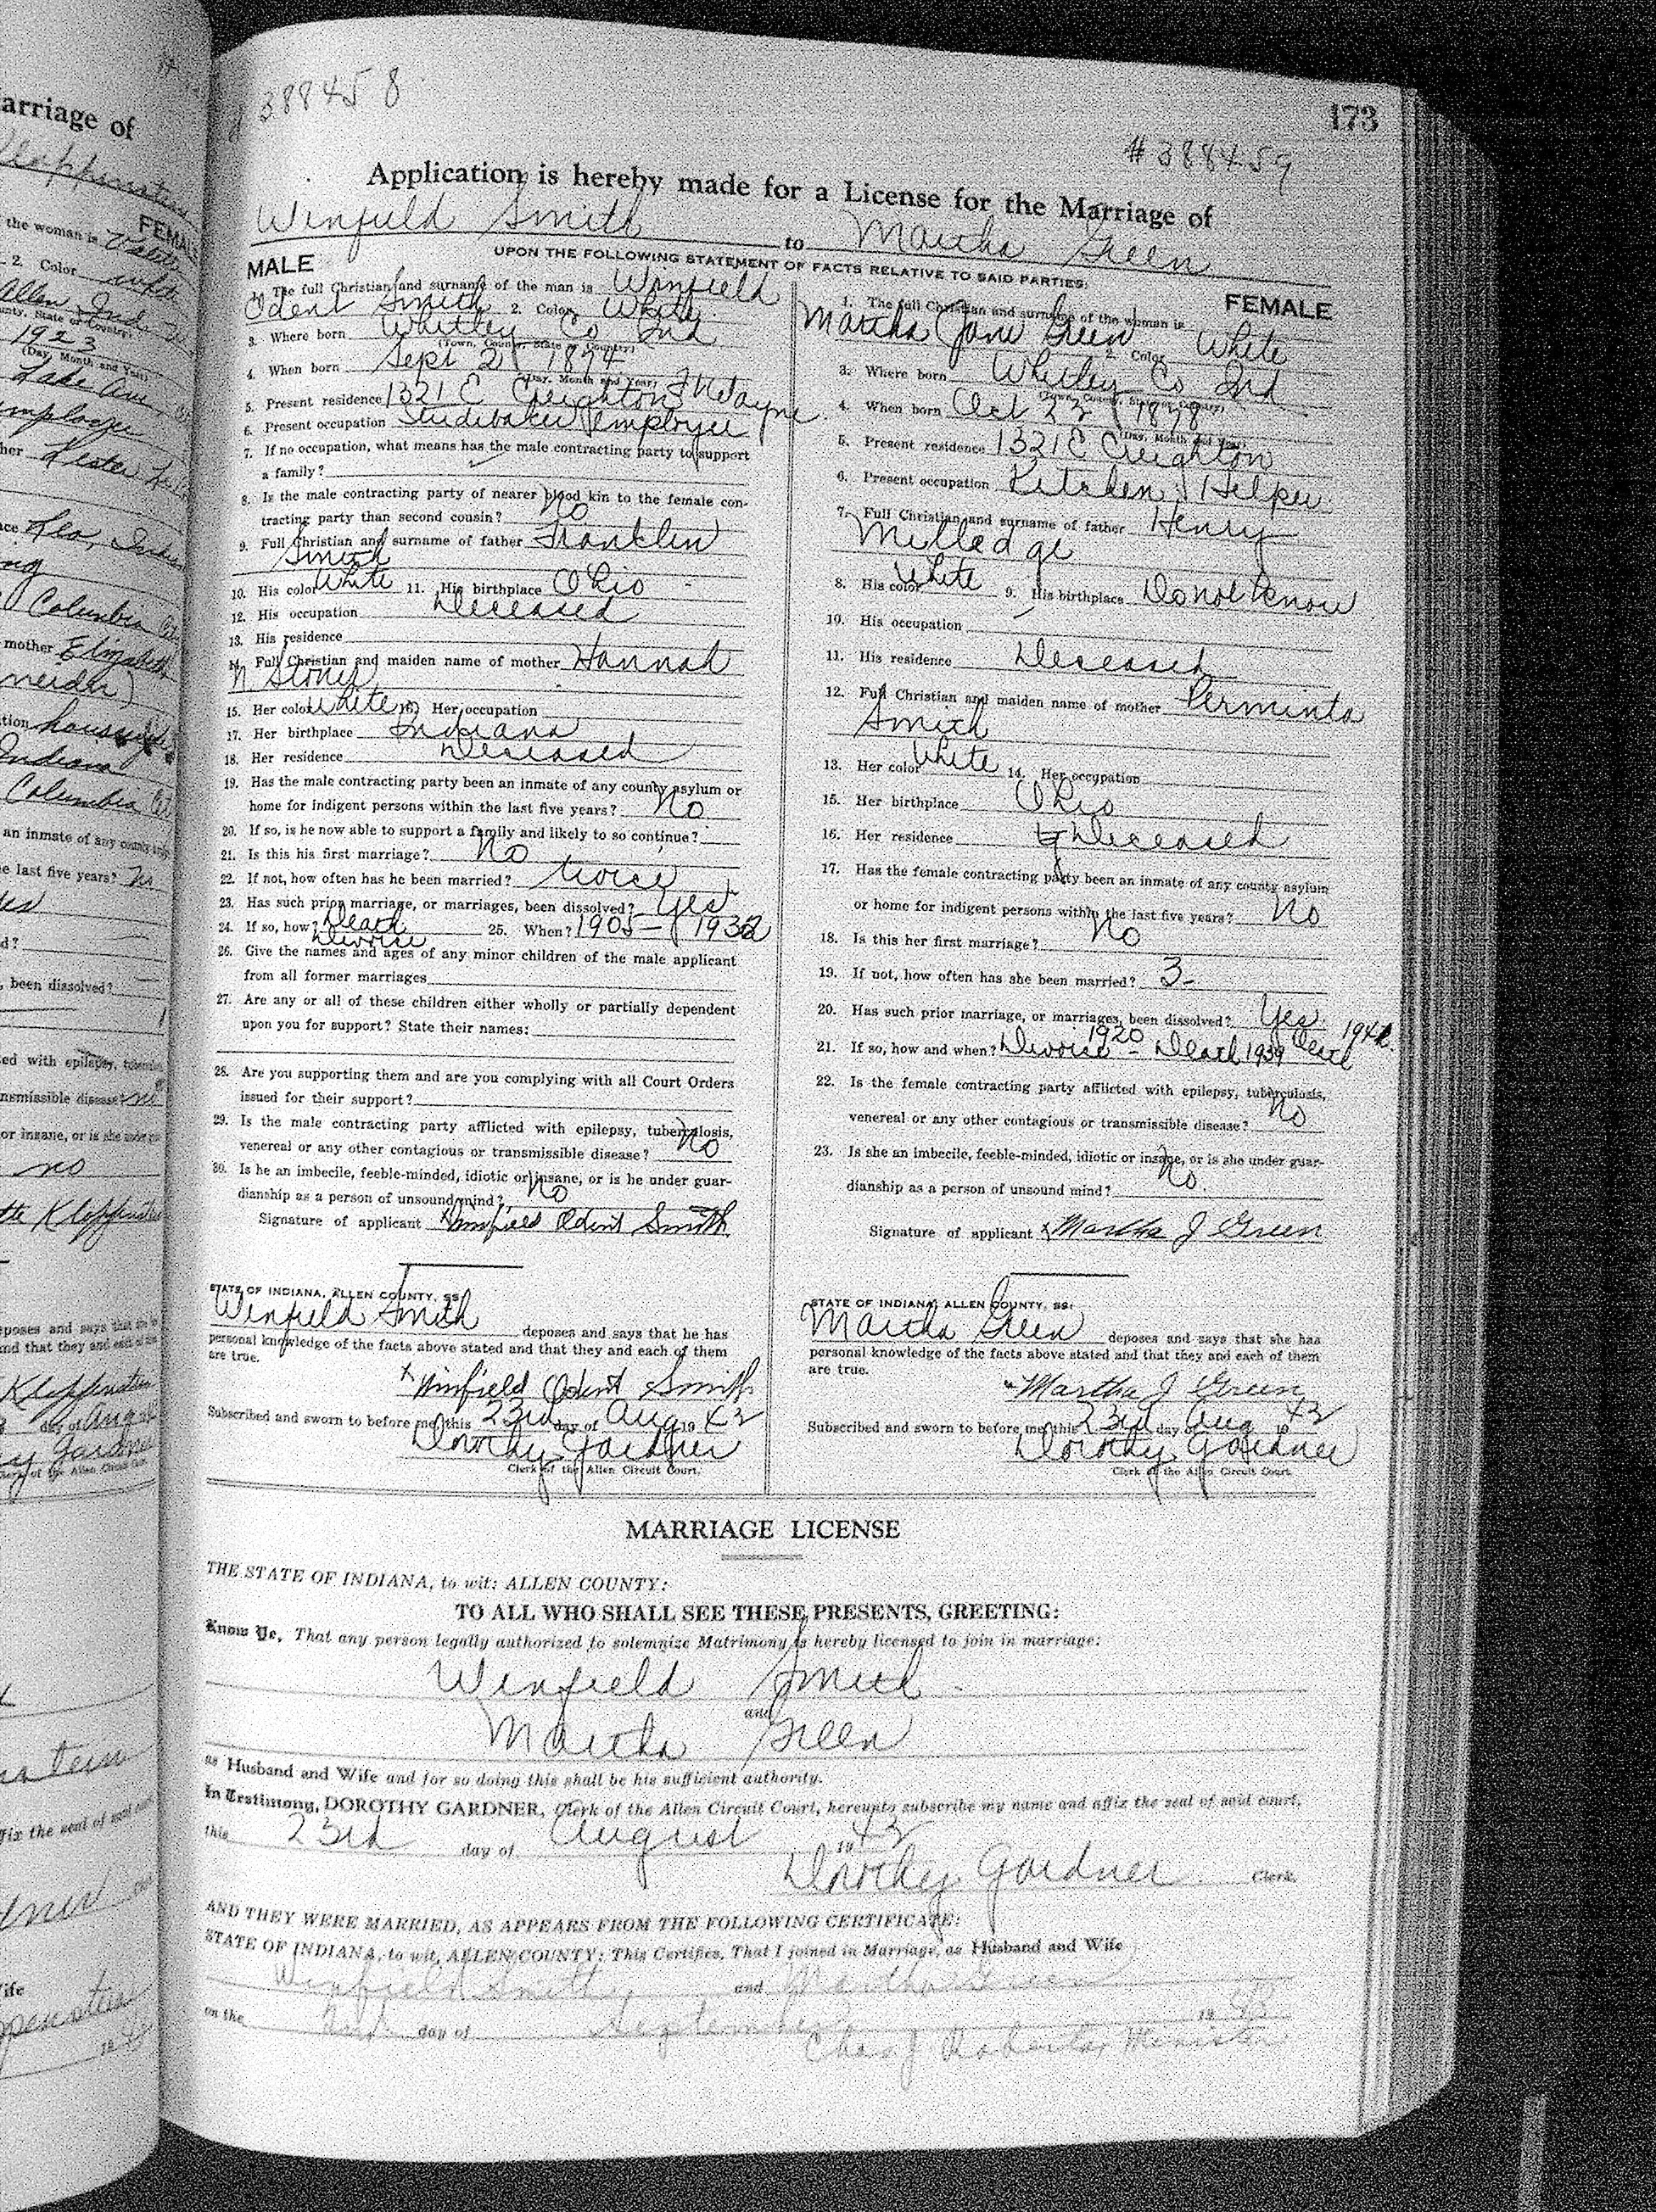 arriage of
FEMAL
the woman is
2. Color
Allen Ind
1923
(Day, Month and Year)
Lake Ave
employee
Lester
Leo,
Columbia
mother Elizabeth
Indiana
Columbia
an inmate of any county
e last five years? no
d?
, been dissolved?
ed with epilepsy,
nsmissible disease? no
or insane, or is she under
no
eposes and says that
and that they and each of
day of Aug
Gardner
Clerk of the Allen Circuit
fix the seal of said court
ife
173
388458
# 388459
Application is hereby made for a License for the Marriage of
Winfield Smith to Martha Green
UPON THE FOLLOWING STATEMENT OF FACTS RELATIVE TO SAID PARTIES:
MALE
1. The full Christian and surname of the man is Winfield
Odent Smith 2. Color White
3. Where born Whitley Co Ind
(Town, County, State or Country)
4. When born Sept 2
(Day, Month and Year)
5. Present residence 1321 E Creighton Ft Wayne
6. Present occupation Studebaker employee
7. If no occupation, what means has the male contracting party to support
a family?
8. Is the male contracting party of nearer blood kin to the female con-
tracting party than second cousin? No
9. Full Christian and surname of father Franklin
Smith
10. His color White 11. His birthplace Ohio
12. His occupation Deceased
13. His residence
14. Full Christian and maiden name of mother Hannah
15. Her color White 16. Her occupation
17. Her birthplace Indiana
18. Her residence Deceased
19. Has the male contracting party been an inmate of any county asylum or
home for indigent persons within the last five years? No
20. If so, is he now able to support a family and likely to so continue?
21. Is this his first marriage? No
22. If not, how often has he been married? twice
23. Has such prior marriage, or marriages, been dissolved? Yes
24. If so, how? Death 25. When? 1905 - 1932
Divorce
26. Give the names and ages of any minor children of the male applicant
from all former marriages
27. Are any or all of these children either wholly or partially dependent
upon you for support? State their names:
28. Are you supporting them and are you complying with all Court Orders
issued for their support?
29. Is the male contracting party afflicted with epilepsy, tuberculosis,
venereal or any other contagious or transmissible disease? No
30. Is he an imbecile, feeble-minded, idiotic or insane, or is he under guar-
dianship as a person of unsound mind? No
Signature of applicant x Winfield Odent Smith
STATE OF INDIANA, ALLEN COUNTY, SS:
Winfield Smith deposes and says that he has
personal knowledge of the facts above stated and that they and each of them
are true.
x Winfield Odent Smith
Subscribed and sworn to before me, this 23rd day of Aug 19 43
Dorothy Gardner
Clerk of the Allen Circuit Court.
FEMALE
1. The full Christian and surname of the woman is
Martha Jane Green 2. Color White
3. Where born Whitley Co Ind
(Town, County, State or Country)
4. When born Oct 23 1878
(Day, Month and Year)
5. Present residence 1321 E Creighton
6. Present occupation Kitchen Helper
7. Full Christian and surname of father Henry
Milledge
8. His color White 9. His birthplace Do not know
10. His occupation
11. His residence Deceased
12. Full Christian and maiden name of mother Perminta
Smith
13. Her color White 14. Her occupation
15. Her birthplace Ohio
16. Her residence Deceased
17. Has the female contracting party been an inmate of any county asylum
or home for indigent persons within the last five years? No
18. Is this her first marriage? No
19. If not, how often has she been married? 3-
20. Has such prior marriage, or marriages, been dissolved? Yes
21. If so, how and when? Divorce 1920 - Death 1939 Death
22. Is the female contracting party afflicted with epilepsy, tuberculosis,
venereal or any other contagious or transmissible disease? No
23. Is she an imbecile, feeble-minded, idiotic or insane, or is she under guar-
dianship as a person of unsound mind? No
Signature of applicant x Martha J Green
STATE OF INDIANA, ALLEN COUNTY, SS:
Martha Green deposes and says that she has
personal knowledge of the facts above stated and that they and each of them
are true.
x Martha J Green
Subscribed and sworn to before me, this 23rd day of Aug 19 43
Dorothy Gardner
Clerk of the Allen Circuit Court.
MARRIAGE LICENSE
THE STATE OF INDIANA, to wit: ALLEN COUNTY:
TO ALL WHO SHALL SEE THESE PRESENTS, GREETING:
Know Ye, That any person legally authorized to solemnize Matrimony is hereby licensed to join in marriage:
Winfield Smith
and
Martha Green
as Husband and Wife and for so doing this shall be his sufficient authority.
In Testimony, DOROTHY GARDNER, Clerk of the Allen Circuit Court, hereunto subscribe my name and affix the seal of said court,
this 23rd day of August 19 43
Dorothy Gardner Clerk.
AND THEY WERE MARRIED, AS APPEARS FROM THE FOLLOWING CERTIFICATE:
STATE OF INDIANA, to wit, ALLEN COUNTY: This Certifies, That I joined in Marriage, as Husband and Wife
Winfield Smith and Martha Green
on the 2nd day of September 19 43
Chas J Roberts, Minister